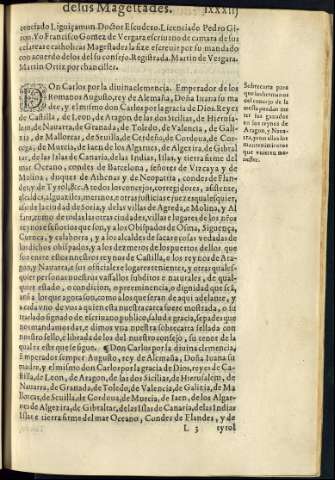 de sus Magestades. lxxxiij
cenciado Liguiçamum. Doctor Escudero. Licenciado Pedro Gi-
ron. Yo Francisco Gomez de Vergara escriuano de camara de sus
cesarea e catholicas Magestades la fize escreuir por su mandado
con acuerdo delos del su consejo. Registrada. Martin de Vergara.
Martin Ortiz por chanciller.
DOn Carlos por la diuina clemencia. Emperador de los
Romanos Augusto, rey de Alemaña, Doña Iuana su ma
dre, y el mismo don Carlos por la gracia de Dios, Reyes
de Castilla, de Leon, de Aragon, de las dos Sicilias, de Hierusa-
lem, de Nauarra, de Granada, de Toledo, de Valencia, de Gali-
zia, de Mallorcas, de Seuilla, de Cerdeña, de Cordoua, de Cor-
cega, de Murcia, de Iaen, de los Algarues, de Algezira, de Gibral
tar, de las Islas de Canaria, de las Indias, Islas, y tierra firme del
mar Oceano, condes de Barcelona, señores de Vizcaya y de
Molina, duques de Athenas y de Neopatria, condes de Flan-
des, y de Tyrol, &c. A todos los corregidores, assistente,
alcaldes, alguaziles, merinos, e otras justicias e juezes qualesquier,
assi de la ciudad de Soria, y de las villas de Agreda, e Molina, y Al
faro, como de todas las otras ciudades, villas e lugares de los nues
reynos e señorios que son, y a los Obispados de Osma, Siguença,
Cuenca, y calahorra, y a los alcaldes de sacas e cosas vedadas de
los dichos obispados, y a los dezmeros de los puertos dellos que
son entre estos nuestros reynos de Castilla, e los reynos de Ara-
gon, y Nauarra,
quier estado, o condicion, o preeminencia, o dignidad que sea,
assi a los que agora son, como a los que seran de aqui adelante, y
a cada vno de vos a quien esta nuestra carta fuere mostrada, o su
traslado signado de escriuano publico, salud e gracia, sepades que
nos mandamos dar, e dimos vna nuestra sobrecarta sellada con
nuestro sello, e librada de los del nuestro consejo, su tenor de la
qual es este que se sigue. ¶ Don Carlos por la diuina clemencia,
Emperador semper Augusto, rey de Alemaña, Doña Iuana su
madre, y el mismo don Carlos por la gracia de Dios, reyes de Ca-
stilla, de Leon, de Aragon, de las dos Sicilias, de Hierusalem, de
Nauarra, de Granada, de Toledo, de Valencia, de Galizia, de Ma
llorcas, de Seuilla, de Cordoua, de Murcia, de Iaen, de los Algar-
ues de Algezira, de Gibraltar, de las Islas de Canaria, de las Indias
Islas e tierra firme del mar Oceano, Condes de Flandes, y de
L 3 tyrol
Sobrecarta para
que los hermanos
del concejo de la
mesta puedan me
ter sus ganados
en los reynos de
Aragon, y Naua
rra, y con ellos los
mantenimientos
que vuieren me-
nester.